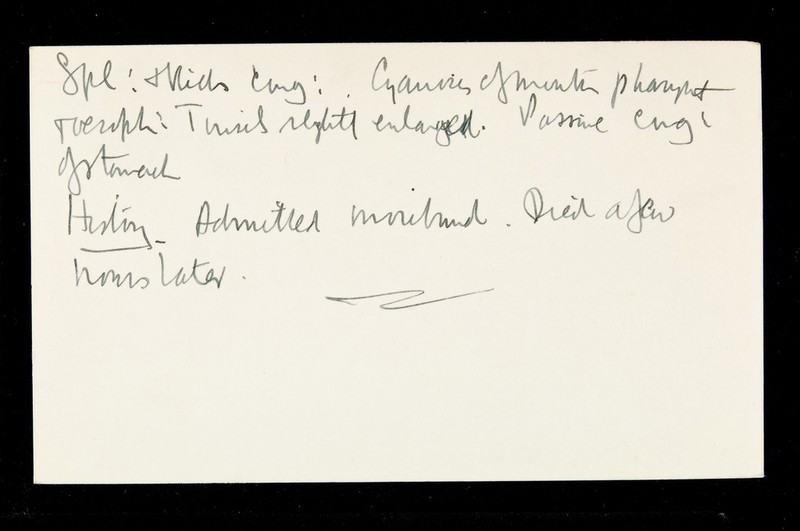 Spl: & Kids Cong: . Cyanosis of mouth pharynx &
& oesoph: Tonsils slightly enlarged. Passive Cong:
of stomach
History – Admitted moribund. Died a few
hours later.